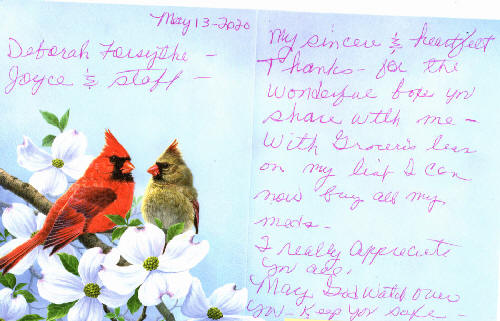 May 13-2020
Deborah Forsythe -
Joyce & staff -
My sincere & heartfelt
Thanks - for the
wonderful box you
share with me -
With Groceries less
on my list I can
now buy all my
meds -
I really Appreciate
you all.
May God Watch over
you - Keep you safe -